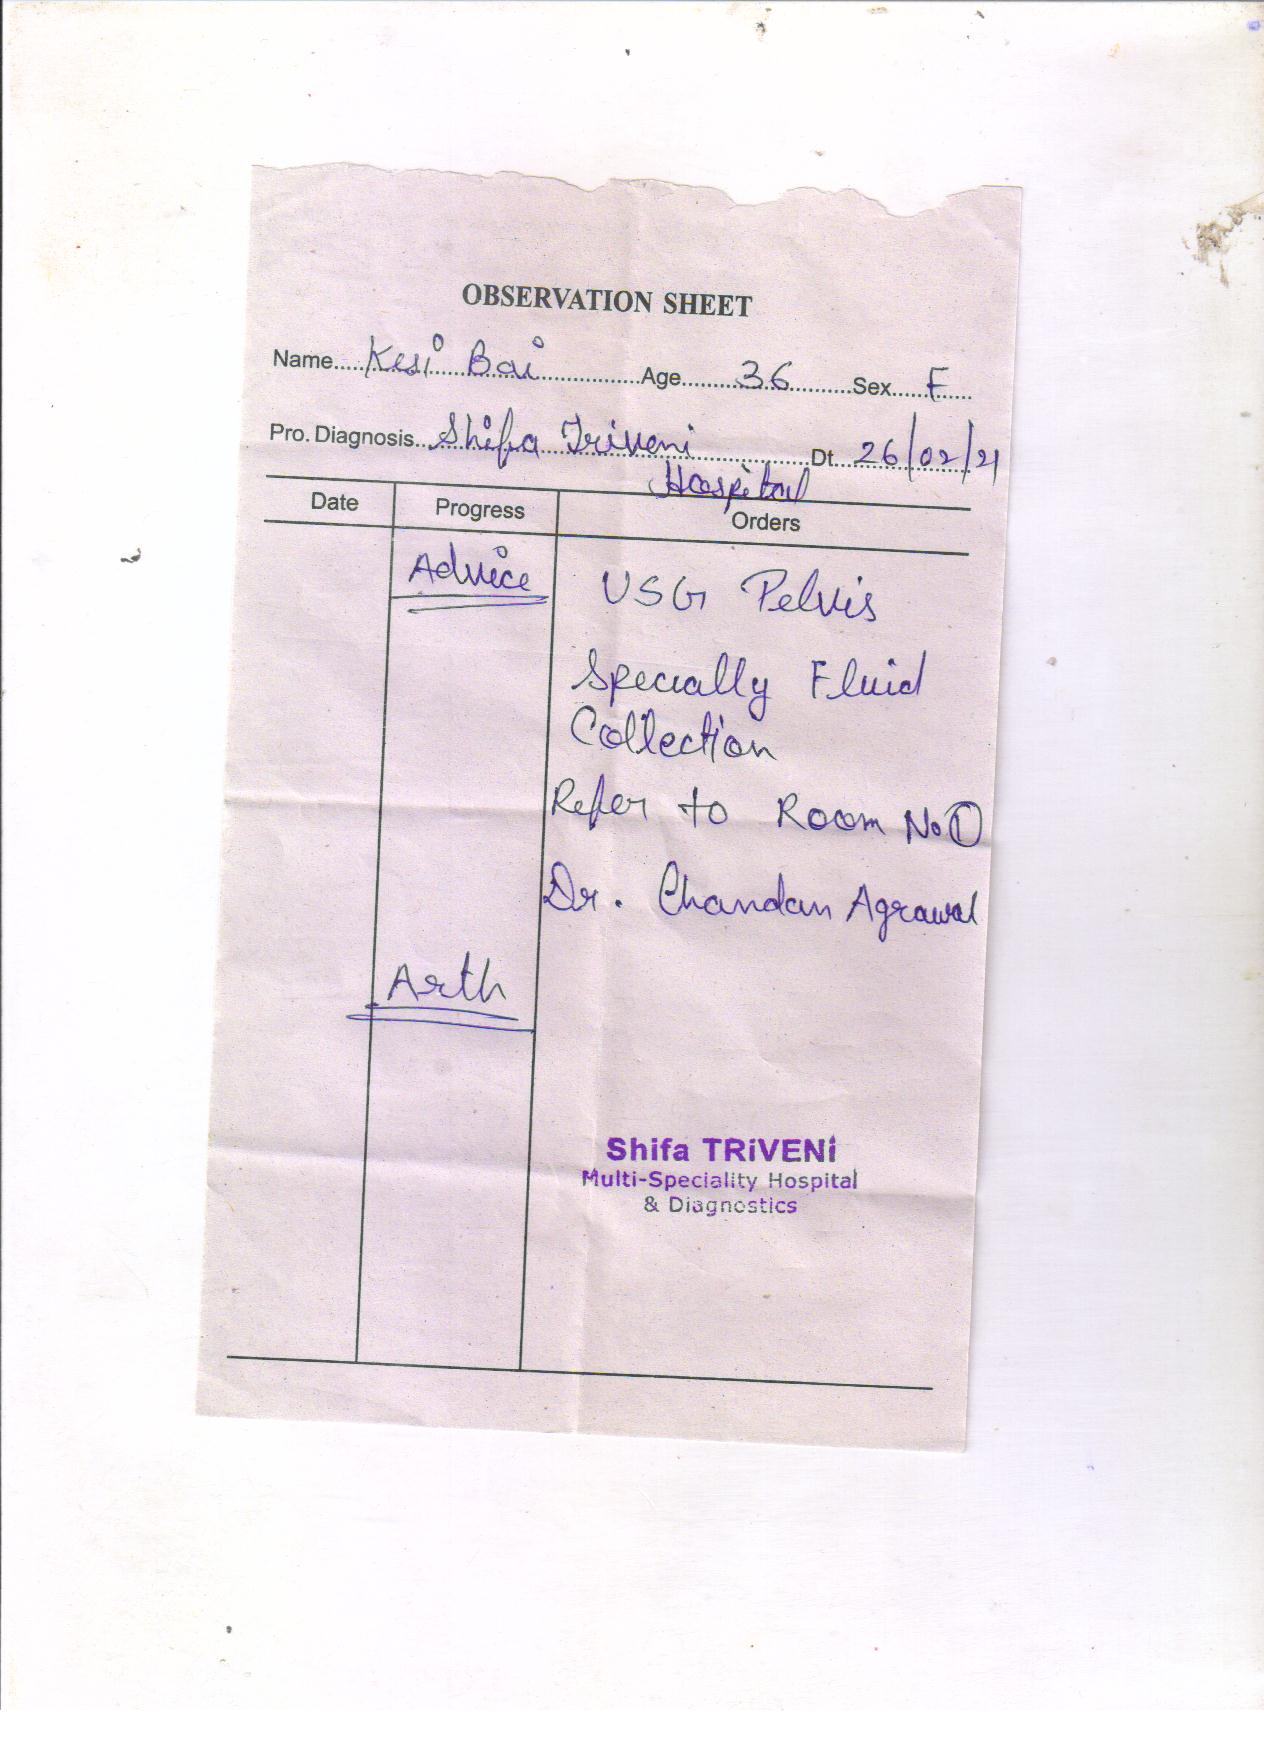 OBSERVATION SHEET
Name.....Kesi Bai..................Age.........36..........Sex......F......
Pro. Diagnosis...Shifa Triveni..................Dt...26/02/21
Hospital
Date Progress Orders
Advice USG Pelvis
Specially Fluid
Collection
Refer to Room No 1
Dr. Chandan Agrawal
Arth
Shifa TRiVENi
Multi-Speciality Hospital
& Diagnostics